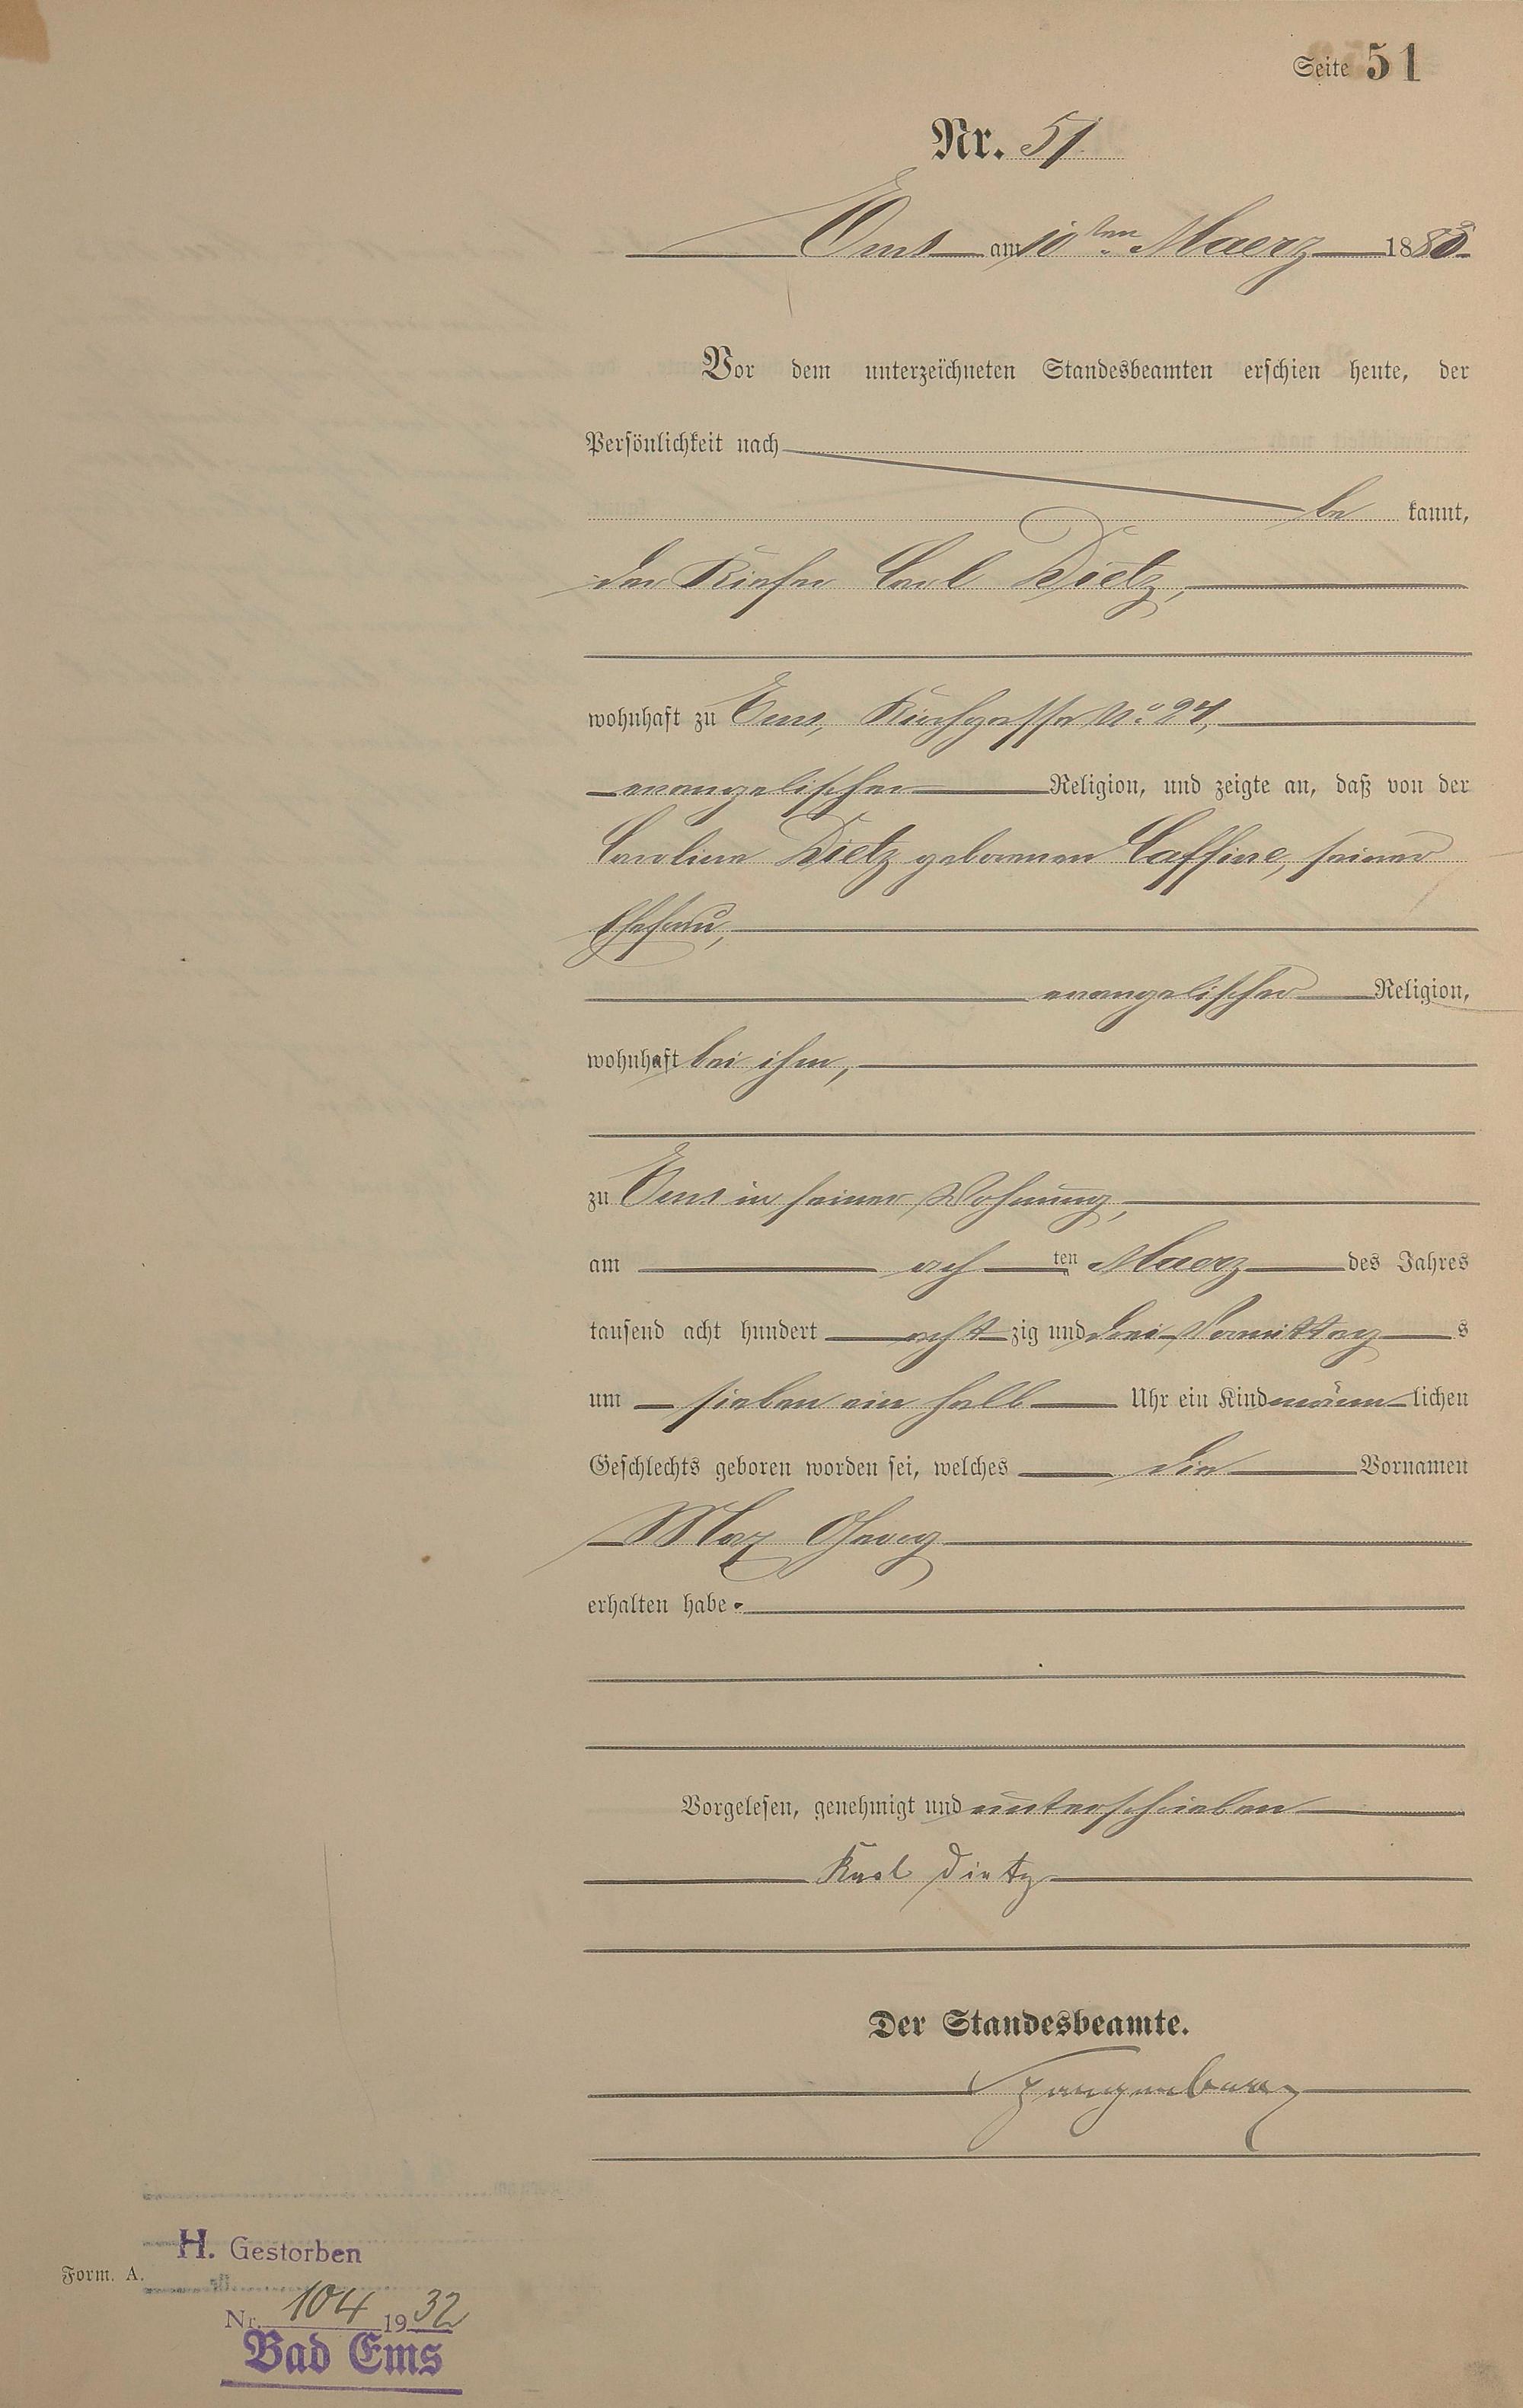 Seite 51
Nr. 51
Ems am 10ten Maerz 1883
Vor dem unterzeichneten Standesbeamten erschien heute, der
Persönlichkeit nach
be kannt,
der Kiefer Carl Dietz,
wohnhaft zu Ems, Kirchgasse No. 24,
evangelischer Religion, und zeigte an, daß von der
Caroline Dietz geborenen Caffine, seiner
Ehefrau,
evangelischer Religion,
wohnhaft bei ihm,
zu Ems in seiner Wohnung,
am ach ten Maerz des Jahres
tausend acht hundert acht zig und drei Vormittag s
um sieben ein halb Uhr ein Kind männ lichen
Geschlechts geboren worden sei, welches die Vornamen
Max Georg
erhalten habe.
Vorgelesen, genehmigt und unterschrieben
Karl Dietz
Der Standesbeamte.
Spangenberg
H. Gestorben
Form. A.
Nr. 104 1932
Bad Ems